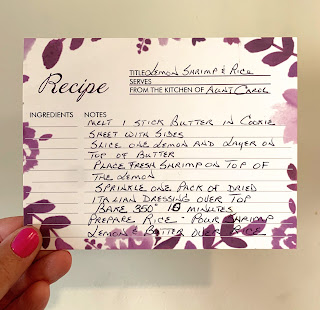 Recipe
TITLE Lemon Shrimp & Rice
SERVES
FROM THE KITCHEN OF Aunt Carol
INGREDIENTS NOTES
MELT 1 STICK BUTTER IN COOKIE
SHEET WITH SIDES
SLICE ONE LEMON AND LAYER ON
TOP OF BUTTER
PLACE FRESH SHRIMP ON TOP OF
THE LEMON
SPRINKLE ONE PACK OF DRIED
ITALIAN DRESSING OVER TOP
BAKE 350° MINUTES
PREPARE RICE - POUR SHRIMP
LEMON & BUTTER OVER RICE